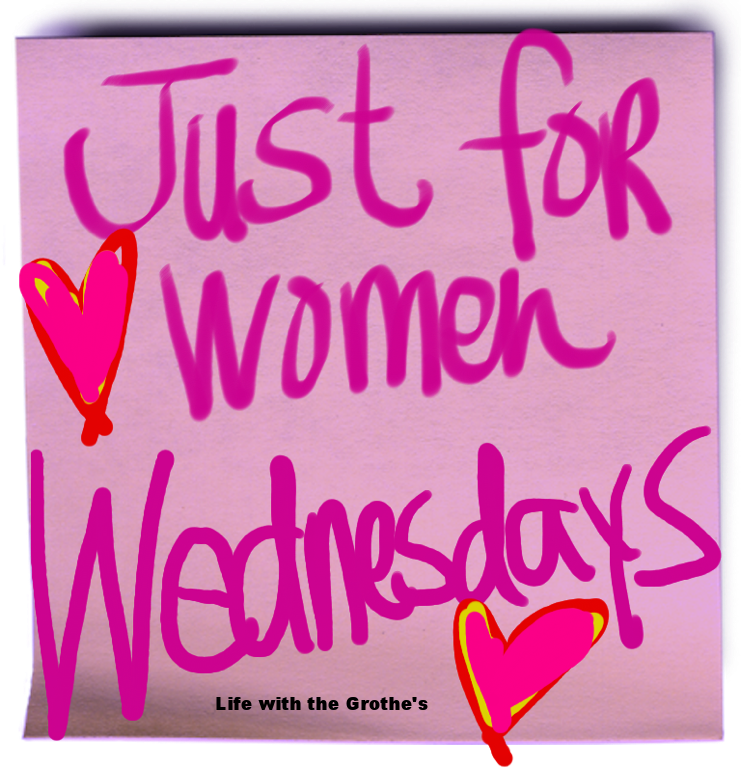 Just for
women
Wednesdays
Life with the Grothe's